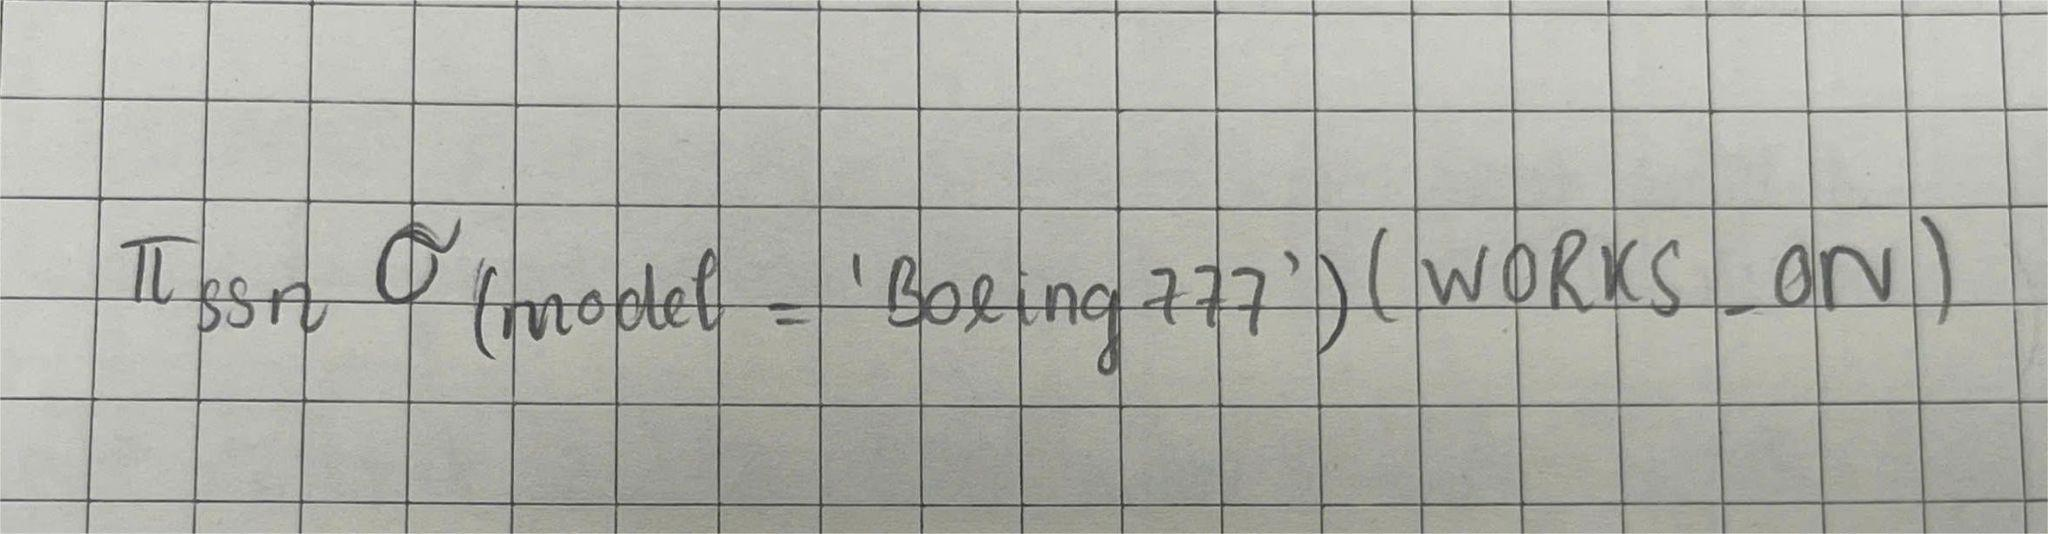 π ssn σ (model = 'Boeing 777') (WORKS_ON)